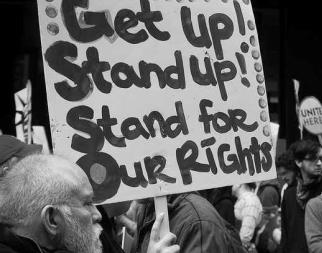 Get up!
Stand up!
Stand for
Our Rights
UNITE
HERE!